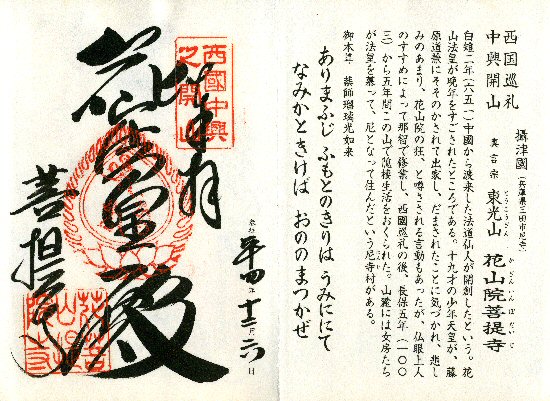 西国巡礼
中興開山
攝津國(兵庫県三田市尼寺)
真言宗 東光山 花山院菩提寺
とうこうざん かざんいんぼだいじ
白雉二年(六五一)中國から渡来した法道仙人が開創したという。花
山法皇が晩年をすごされたところである。十九才の少年天皇が、藤
原道兼にそそのかされて出家し、だまされたことに気づかれ、悲し
みのあまり、花山院の狂、と噂さされる言動もあったが、仏眼上人
のすすめによって那智で修業し、西國巡礼の後、長保五年(一〇〇
三)から五年間この山で隠棲生活をおくられた。山麓には女房たち
が法皇を慕って、尼となって住んだという尼寺村がある。
御本尊 薬師瑠璃光如来
ありまふじ ふもとのきりは うみににて
なみかときけば おののまつかぜ
奉拝
西國中興
之開山
花山法皇殿
菩提寺
平成四年十二月六日